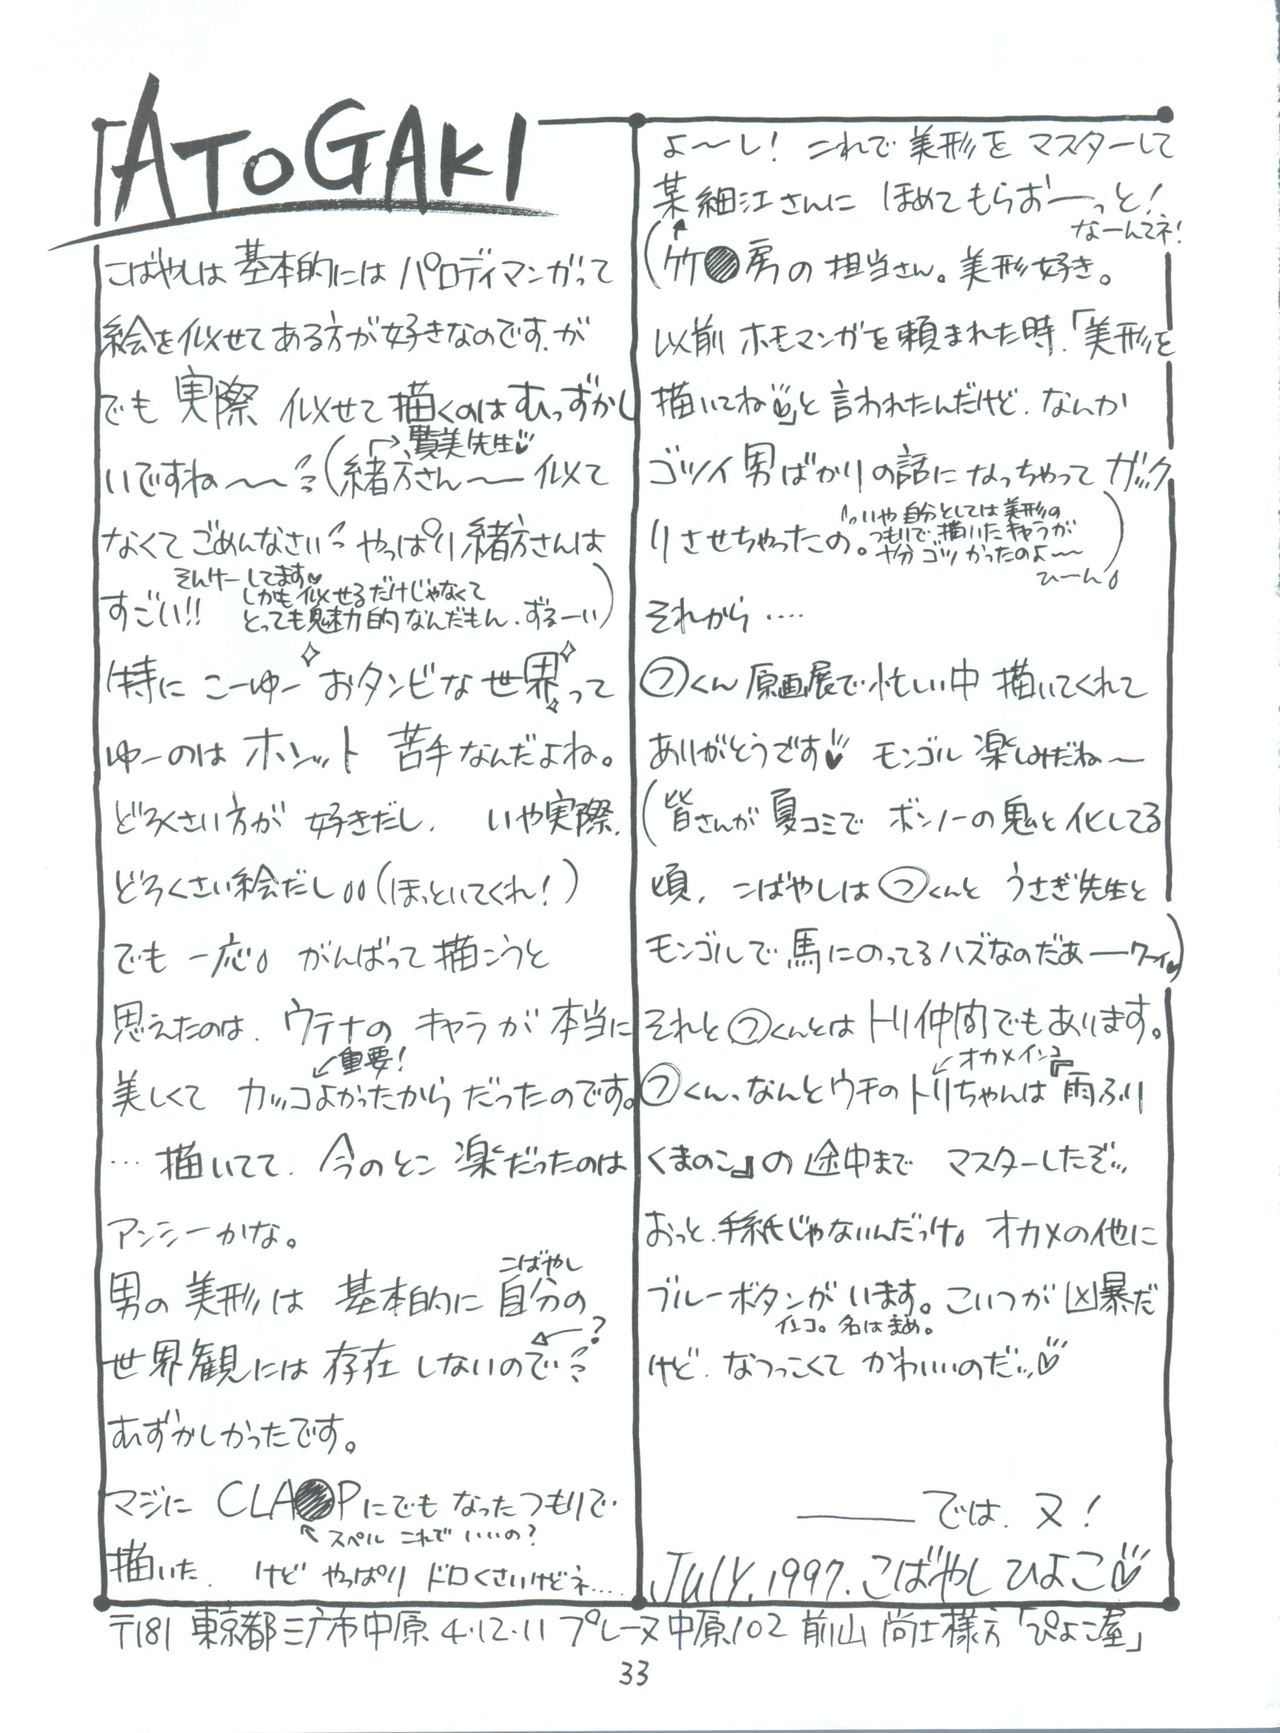 ATOGAKI
こばやしは基本的にはパロディマンガって
絵を似せてある方が好きなのです.が
でも 実際 似せて描くのはむっずかし
いですね〜〜(緒方さん〜似て
→賢美先生♡
なくてごめんなさい やっぱり緒方さんは
すごい!!
そんけーしてます♡
しかも似せるだけじゃなくて
とっても魅力的なんだもん.ずるーい)
特に こーゆー おタンビな世界って
ゆーのは ホンット 苦手なんだよね。
どろくさい方が 好きだし. いや実際.
どろくさい絵だし(ほっといてくれ!)
でも 一応。がんばって描こうと
思えたのは. ウテナの キャラが 本当に
美しくて カッコよかったから だったのです。
↙重要!
… 描いてて. 今のとこ 楽だったのは
アンシーかな。
男の 美形は 基本的に 自分の
こばやし
世界観には 存在 しないので
←?
むずかしかったです。
マジに CLA●Pにでも なったつもりで.
↖スペル これで いいの?
描いた. けど やっぱり ドロくさいけどネ....
よ〜し! これで 美形を マスターして
某細江さんに ほめてもらおーっと!
なーんてネ!
(竹●房の 担当さん。美形好き。
以前 ホモマンガを 頼まれた時.「美形を
描いてね♡」と 言われたんだけど. なんか
ゴツイ 男ばかりの話に なっちゃって ガック
リさせちゃったの。
いや 自分としては 美形の
つもりで 描いた キャラが
やや ゴツかったのよ〜〜
ひーん)
それから ‥‥
㋫くん 原画展で 忙しい中 描いてくれて
ありがとうです♡ モンゴル 楽しみだね〜
(皆さんが 夏コミで ボンノーの鬼と 化してる
頃, こばやしは ㋫くんと うさぎ先生と
モンゴルで 馬にのってるハズなのだあーワーイ♡)
それと ㋫くんとは トリ仲間でもあります。
㋫くん、なんと ウチの トリちゃんは『雨ふり
↙オカメインコ
くまのこ』の 途中まで マスターしたぞ
おっと.手紙じゃないんだっけ。オカメの他に
ブルーボタンが います。こいつが 凶暴だ
インコ。名はまめ。
けど. なつっこくて かわいいのだ♡
―― では. 又!
JULY. 1997. こばやし ひよこ♡
〒181 東京都三鷹市中原 4-12-11 プレーヌ中原102 前山 尚士様方「ぴよこ屋」
33